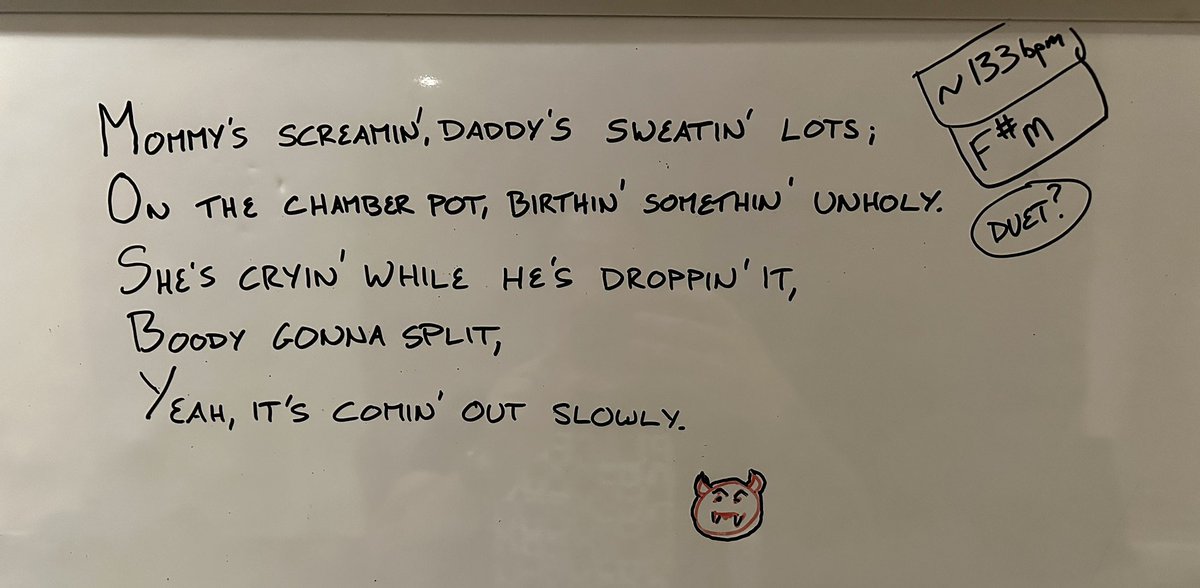 MOMMY'S SCREAMIN', DADDY'S SWEATIN' LOTS;
ON THE CHAMBER POT, BIRTHIN' SOMETHIN' UNHOLY.
SHE'S CRYIN' WHILE HE'S DROPPIN' IT,
BOODY GONNA SPLIT,
YEAH, IT'S COMIN' OUT SLOWLY.
~133bpm
F#m
DUET?